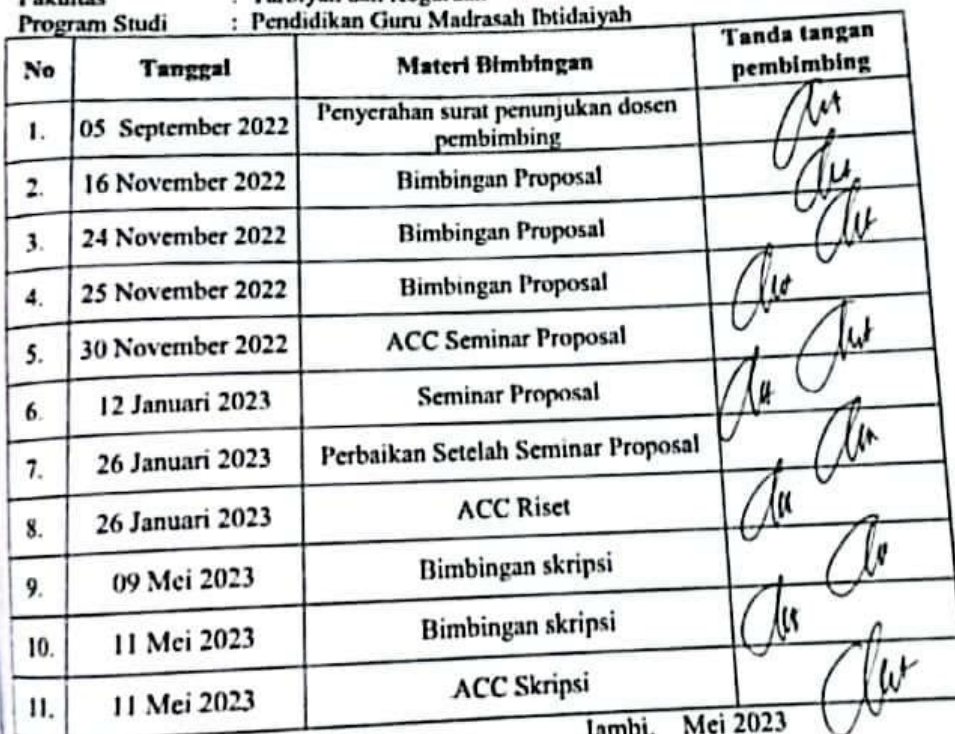 Program Studi : Pendidikan Guru Madrasah Ibtidaiyah
No Tanggal Materi Bimbingan Tanda tangan
pembimbing
1. 05 September 2022 Penyerahan surat penunjukan dosen
pembimbing
2. 16 November 2022 Bimbingan Proposal
3. 24 November 2022 Bimbingan Proposal
4. 25 November 2022 Bimbingan Proposal
5. 30 November 2022 ACC Seminar Proposal
6. 12 Januari 2023 Seminar Proposal
7. 26 Januari 2023 Perbaikan Setelah Seminar Proposal
8. 26 Januari 2023 ACC Riset
9. 09 Mei 2023 Bimbingan skripsi
10. 11 Mei 2023 Bimbingan skripsi
11. 11 Mei 2023 ACC Skripsi
Jambi, Mei 2023